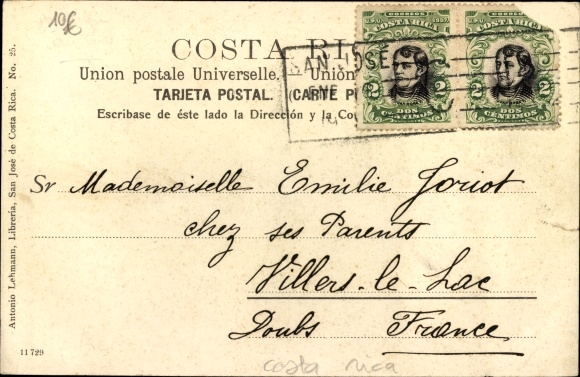 10€
COSTA RI
Union postale Universelle. Unión
TARJETA POSTAL. (CARTE P
Escribase de éste lado la Dirección y la Co
CORREOS
U.P.U. 1907
COSTA RICA
2 2
DOS
CENTIMOS
COSTA RICA
2 2
DOS
CENTIMOS
SAN JOSÉ
Sr Mademoiselle Emilie Joriot
chez ses Parents
Villers-le-Lac
Doubs France
Antonio Lehmann, Librería, San José de Costa Rica. No. 25.
11729
costa rica